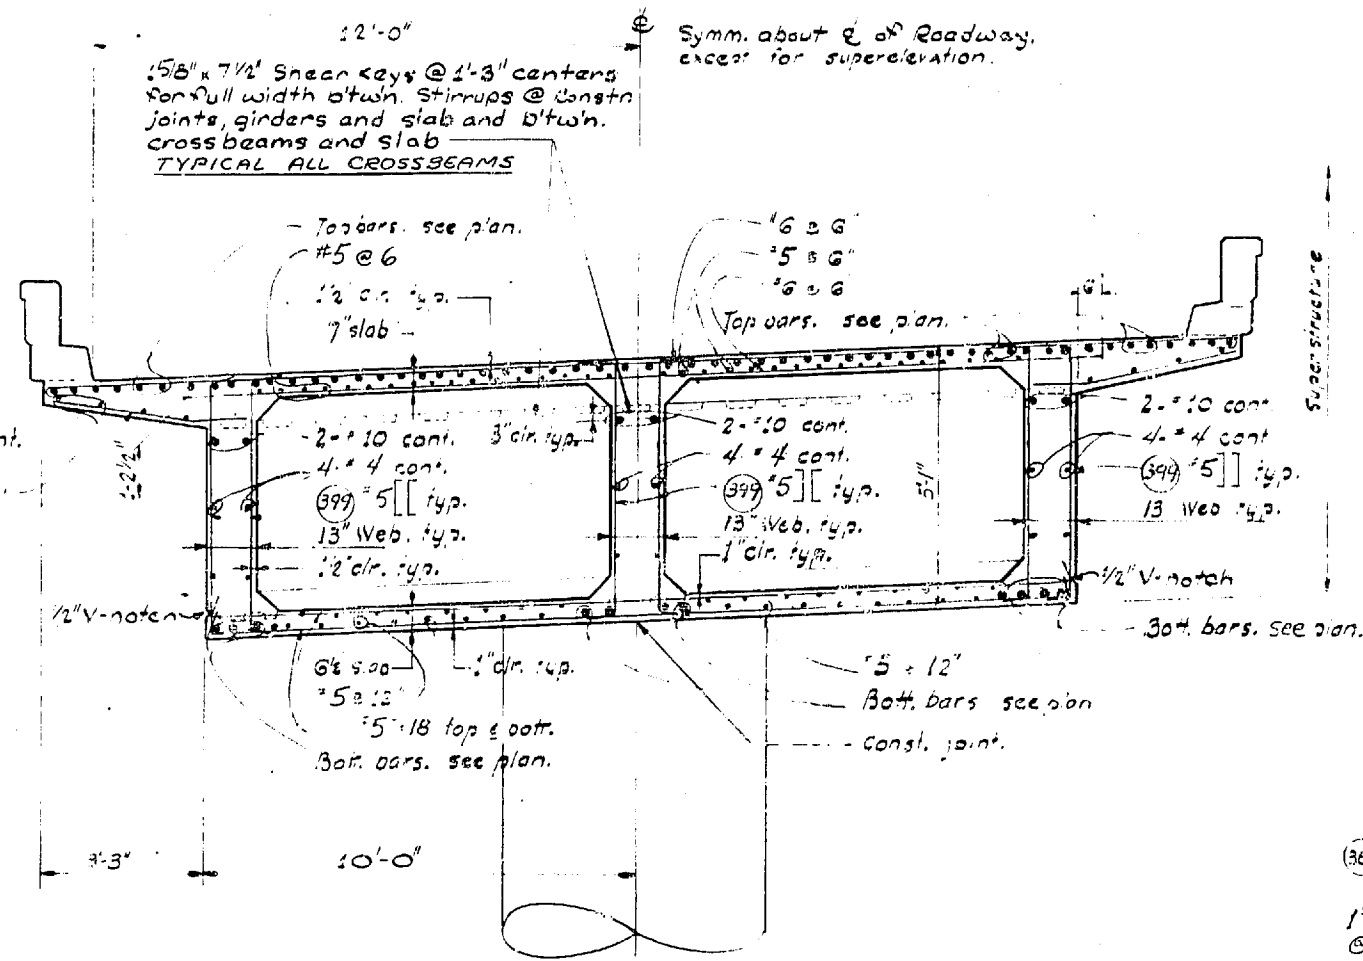 12'-0"
Symm. about ℄ of Roadway,
except for superelevation.
1 5/8" x 7 1/2" Shear keys @ 1'-3" centers
for full width b'tw'n. Stirrups @ Constn
joints, girders and slab and b'tw'n.
crossbeams and slab
TYPICAL ALL CROSSBEAMS
Top bars. see plan.
#5 @ 6
clr. typ.
7" slab
#6 @ 6"
#5 @ 6"
#6 @ 6
Top bars. see plan.
6"
Superstructure
nt.
2-#10 cont.
4-#4 cont.
399 #5 ][ typ.
13" Web. typ.
1/2" clr. typ.
3" clr. typ.
2-#10 cont.
4-#4 cont.
399 #5 ][ typ.
13" Web. typ.
1" clr. typ.
5'-1"
2-#10 cont.
4-#4 cont
399 #5 ][ typ.
13 Web typ.
1'-2 1/2"
1/2" V-notch
1/2" V-notch
Bott. bars. see plan.
slab
1" clr. typ.
#5 @ 12"
#5 18 top & bott.
Bott. bars. see plan.
#5 12"
Bott. bars see plan
Const. joint.
3'-3"
10'-0"